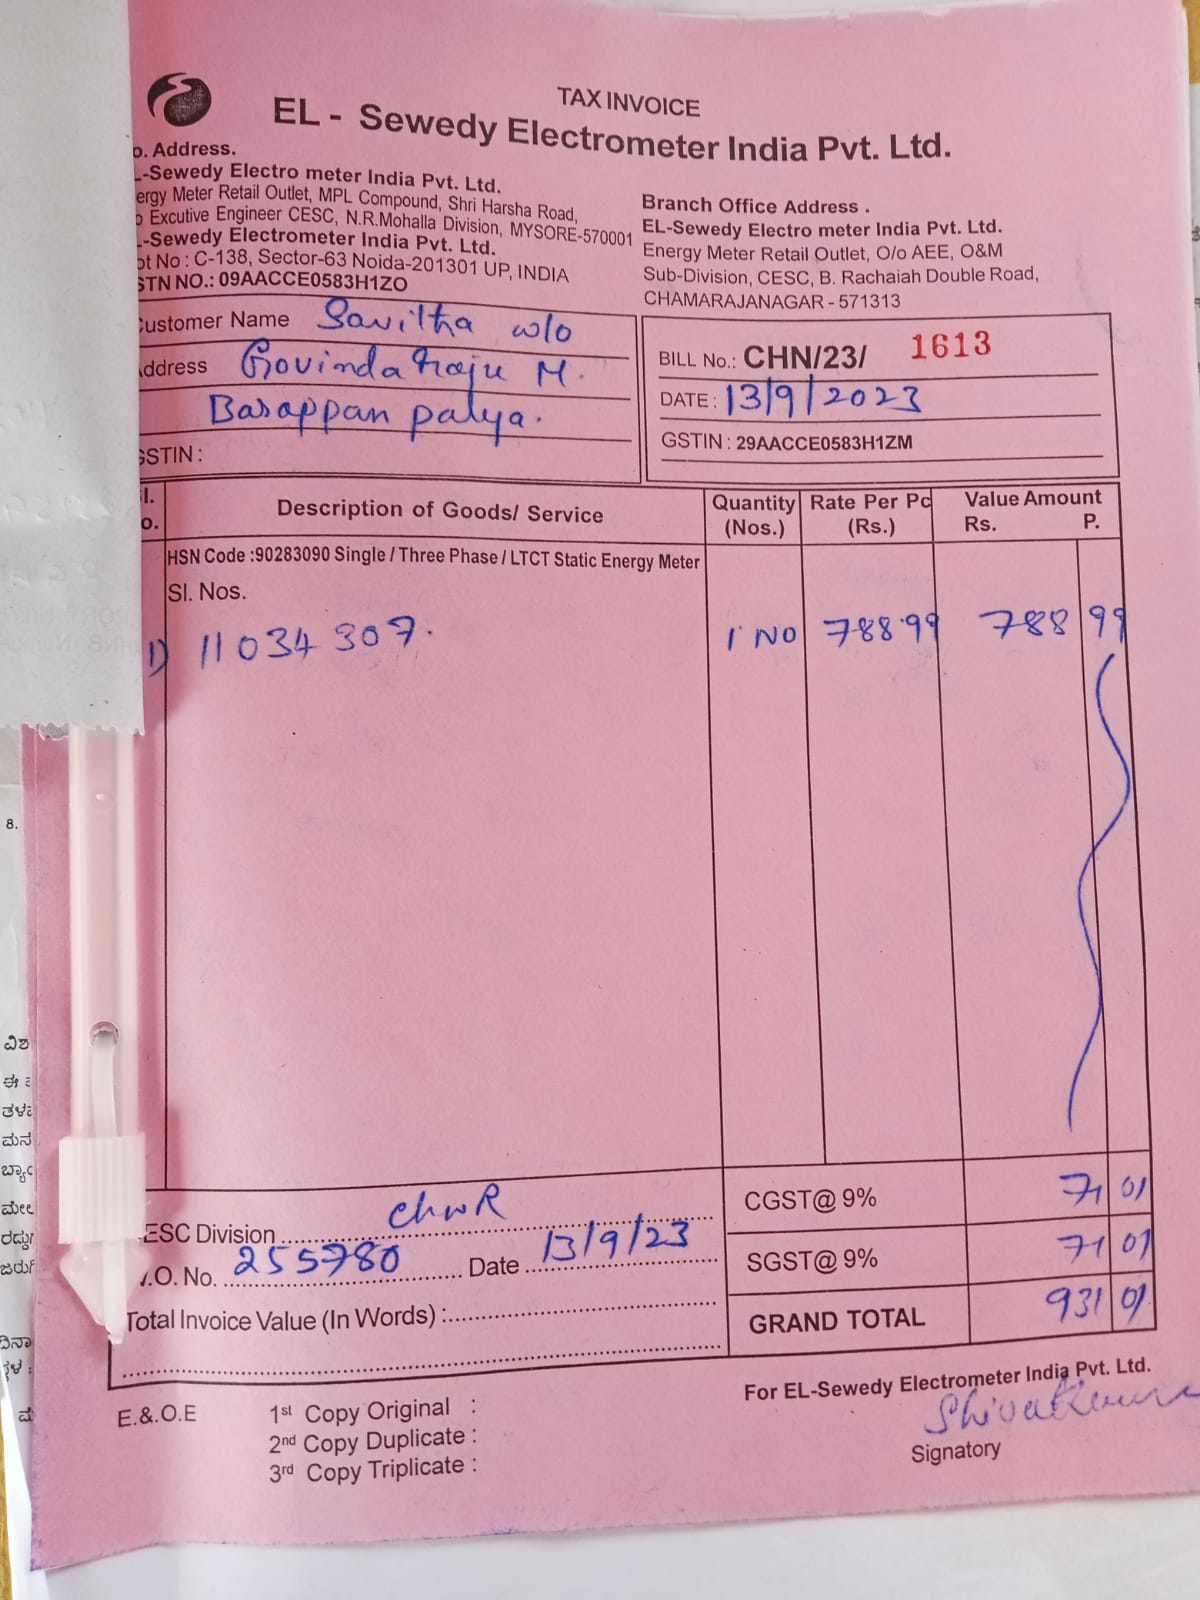 TAX INVOICE
EL - Sewedy Electrometer India Pvt. Ltd.
o. Address.
L-Sewedy Electro meter India Pvt. Ltd.
ergy Meter Retail Outlet, MPL Compound, Shri Harsha Road,
o Excutive Engineer CESC, N.R.Mohalla Division, MYSORE-570001
L-Sewedy Electrometer India Pvt. Ltd.
ot No : C-138, Sector-63 Noida-201301 UP, INDIA
STN NO.: 09AACCE0583H1ZO
Branch Office Address .
EL-Sewedy Electro meter India Pvt. Ltd.
Energy Meter Retail Outlet, O/o AEE, O&M
Sub-Division, CESC, B. Rachaiah Double Road,
CHAMARAJANAGAR - 571313
Customer Name Savitha w/o
Address Govindaraju M.
Basappan palya.
GSTIN :
BILL No.: CHN/23/ 1613
DATE : 13/9/2023
GSTIN : 29AACCE0583H1ZM
Sl. No. Description of Goods/ Service Quantity (Nos.) Rate Per Pc (Rs.) Value Amount Rs. P.
HSN Code :90283090 Single / Three Phase / LTCT Static Energy Meter
Sl. Nos.
1) 11034307. 1 No 788.99 788 99
CGST@ 9% 71 01
SGST@ 9% 71 01
GRAND TOTAL 931 01
ESC Division chnR
.O. No. 255780 Date 13/9/23
Total Invoice Value (In Words) :
For EL-Sewedy Electrometer India Pvt. Ltd.
Shivakumar
Signatory
E.&.O.E
1st Copy Original :
2nd Copy Duplicate :
3rd Copy Triplicate :
8.